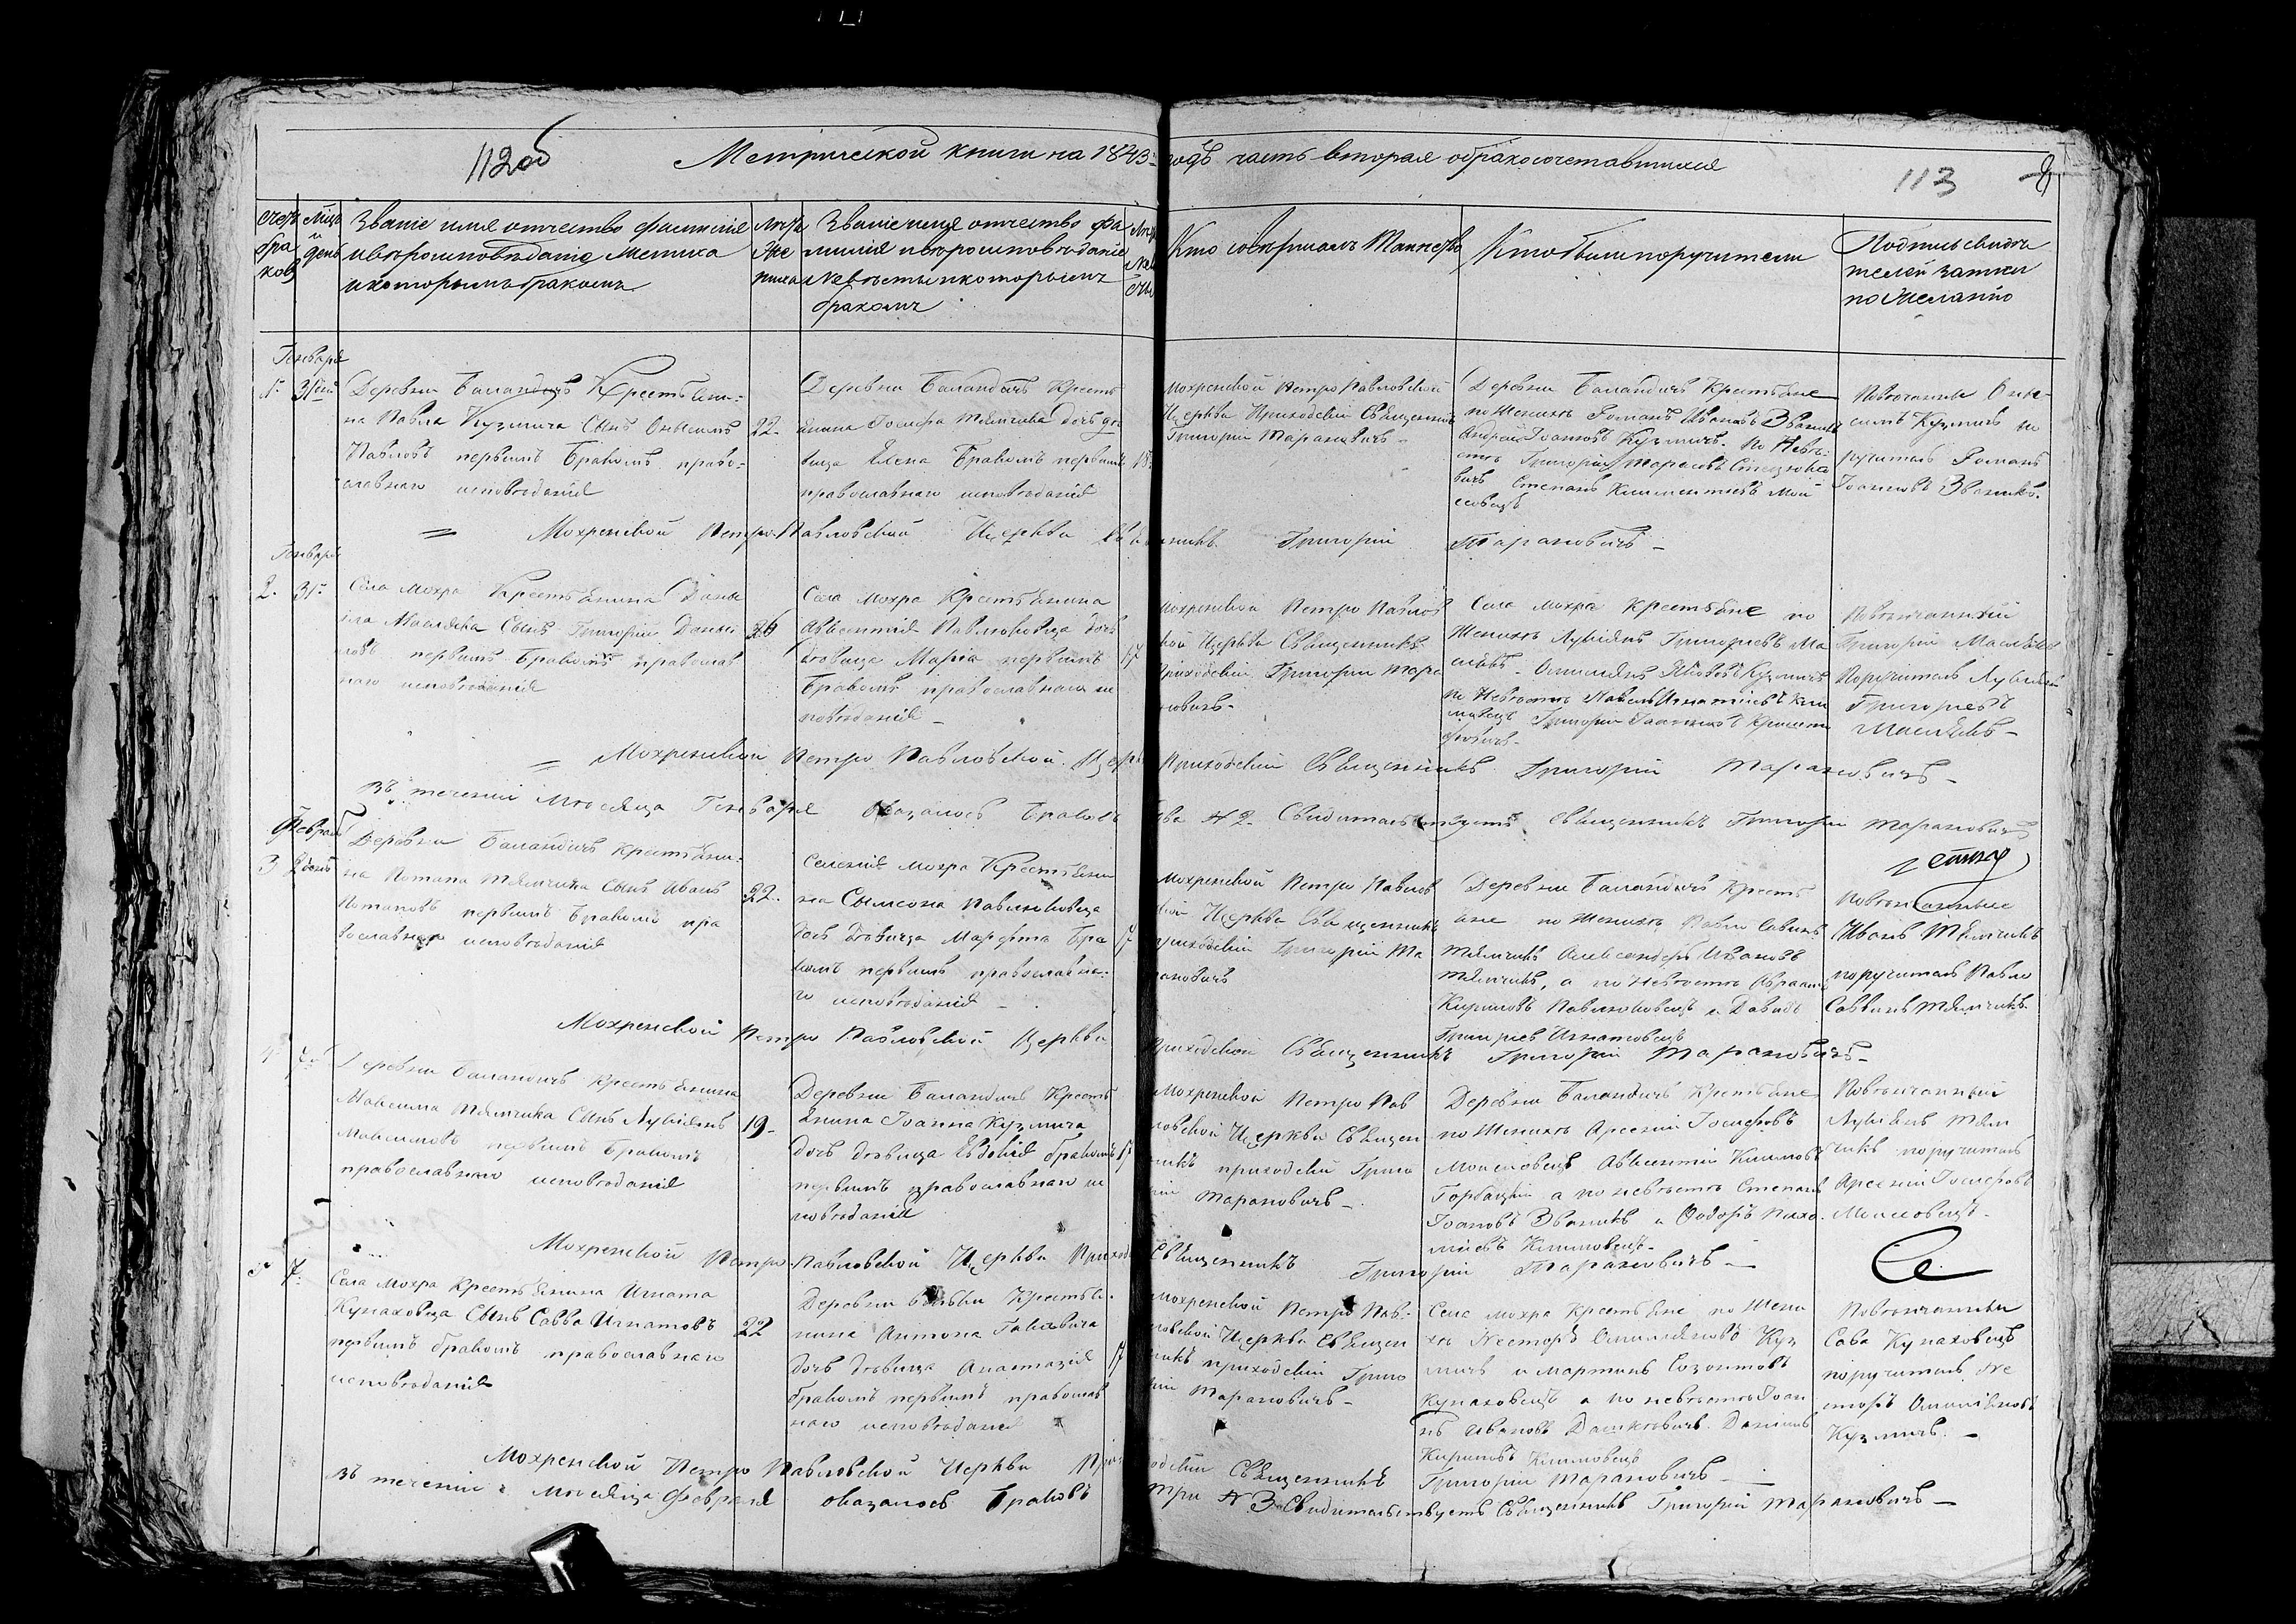 112об
Метрической книги на 1843: годъ часть вторая обракосочетавшихся
113
счетъ браков
мцъ и день
Званіе имя отчество фамилія
и вероисповѣданіе Жениха
и которымъ бракомъ
лѣта Же ниха
Званіе имя отчество фа
милія и вѣроисповѣданіе
невѣсты и которымъ
бракомъ
Кто совершалъ Таинство
Кто были поручители
Подпись свидѣ
телей записи
по Желанію
Генваря
1. 31
Деревни Баландичъ Крестьяни-
на Павла Кузмича Сынъ Онысимъ
Павловъ первымъ Бракомъ право-
славнаго исповѣданія
22.
Деревни Баландичъ Кресть
янина Іосифа Тямчика дочь дѣ
вица Елена Бракомъ первымъ
православнаго исповѣданія
18
Мохренской Петро Павловской
Церкви Приходскій Священникъ
Григорій Тарановичъ -
Деревни Баландичъ Крестьяне
по Женихѣ Романъ Ивановъ Званикъ
Андрей Іоанновъ Кузмичъ. По Невѣ-
стѣ Григорій Тарасовъ
Степанъ Климентиевъ
Повѣнчанны Они-
симъ Кузмичъ по
ручитель Романъ
Іоанновъ Званикъ.
= Мохренской Петро-Павловской Церкви Священникъ Григорій Тарановичъ -
Генваря
2. 31.
Села Мохра Крестьянина Дани
ла Масляка Сынъ Григорій Дани
ловъ первымъ Бракомъ православ
наго исповѣданія
26
Села Мохра Крестьянина
Авксентія Павлюковца дочь
дѣвица Марія первымъ
Бракомъ православнаго ис
повѣданія -
17
Мохренской Петро Павлов
ской Церкви Священникъ
Приходскій Григорій Тара
новичъ -
Села Мохра Крестьяне по
Женихѣ Лукіянъ Григориевъ Ма
слякъ - Омилянъ Яковъ Кузмичъ
по Невѣстѣ Павелъ Игнатиевъ Кли
мовецъ Григорій Іоанновъ
Повѣнчанный
Григорій Маслякъ
Поручитель Лукіянъ
Григориевъ
Маслякъ -
= Мохренской Петро Павловской Церкви Приходскій Священникъ Григорій Тарановичъ -
Въ теченіи Мѣсяца Генваря оказалось Браковъ два № 2. Свидительствуетъ Священникъ Григорій Тарановичъ
Февраль
3
Деревни Баландичъ Крестьяни-
на Потапа Тямчика Сынъ Иванъ
Потаповъ первымъ Бракомъ пра
вославнаго исповѣданія
22.
Селенія Мохра Крестьяни
на Сымсона Павлюковца
дочь дѣвица Марфта Бра
комъ первымъ православна-
го исповѣданія -
17
Мохренской Петро Павлов
ской Церкви Священникъ
приходскій Григорій Та
рановичъ
Деревни Баландичъ Кресть
яне по Женихѣ Павли Савинъ
Тямчикъ Александеръ Ивановъ
Тямчикъ, а по Невѣстѣ Авраамъ
Кириловъ Павлюковецъ и Давидъ
Григориев Игнатовецъ
Повѣнчанные
Иванъ Тямчикъ
поручитель Павло
Саввинъ Тямчикъ
Мохренской Петро Павловской Церкви Приходской Священникъ Григорій Тарановичъ -
4
Деревни Баландичъ Крестьянина
Максима Тямчика Сынъ Лукіянъ
Максимовъ первымъ Бракомъ
православнаго исповѣданія
19 -
Деревни Баландичъ Кресть
янина Іоанна Кузмича
дочь дѣвица Евдокія бракомъ
первымъ православнаго ис
повѣданія
17
Мохренской Петро Пав
ловской Церкви Священ
никъ приходскій Григо
рій Тарановичъ -
Деревни Баландичъ Крестьяне
по Женихѣ Арсеній Іосифовъ
Моисовецъ Авксентій Климовъ
Горбацкій а по невѣстѣ Степанъ
Іоановъ Званикъ и Ѳодоръ Пахо
міевъ Климовецъ -
Повѣнчанный
Лукіянъ Тям
чикъ поручитель
Арсеній Іосифовъ
Моисовецъ -
Мохренской Петро-Павловской Церкви Приход Священникъ Григорій Тарановичъ -
5 7.
Села Мохра Крестьянина Игната
Кунаховца Сынъ Савва Игнатовъ
первымъ бракомъ православнаго
исповѣданія
22
Деревни Крестья-
нина Антона
дочь дѣвица Анастасія
бракомъ первымъ православ
наго исповѣданія
17
Мохренской Петро Пав-
ловской Церкви Священ
никъ приходскій Григо
рій Тарановичъ -
Села Мохра Крестьяне по Жени
хѣ Несторъ Омиляновъ Куз
мичъ и Мартинъ Созонтовъ
Кунаховецъ а по невѣстѣ Іоан
нъ Ивановъ Данилъ
Кириловъ Климовецъ
Повѣнчанны
Сава Кунаховецъ
поручитель Не
сторъ Омиляновъ
Кузмичъ. -
Мохренской Петро Павловской Церкви Приходскій Священникъ Григорій Тарановичъ -
Въ теченіи Мѣсяца Февраля оказалось Браковъ три № 3 Свидительствуетъ Священникъ Григорій Тарановичъ -